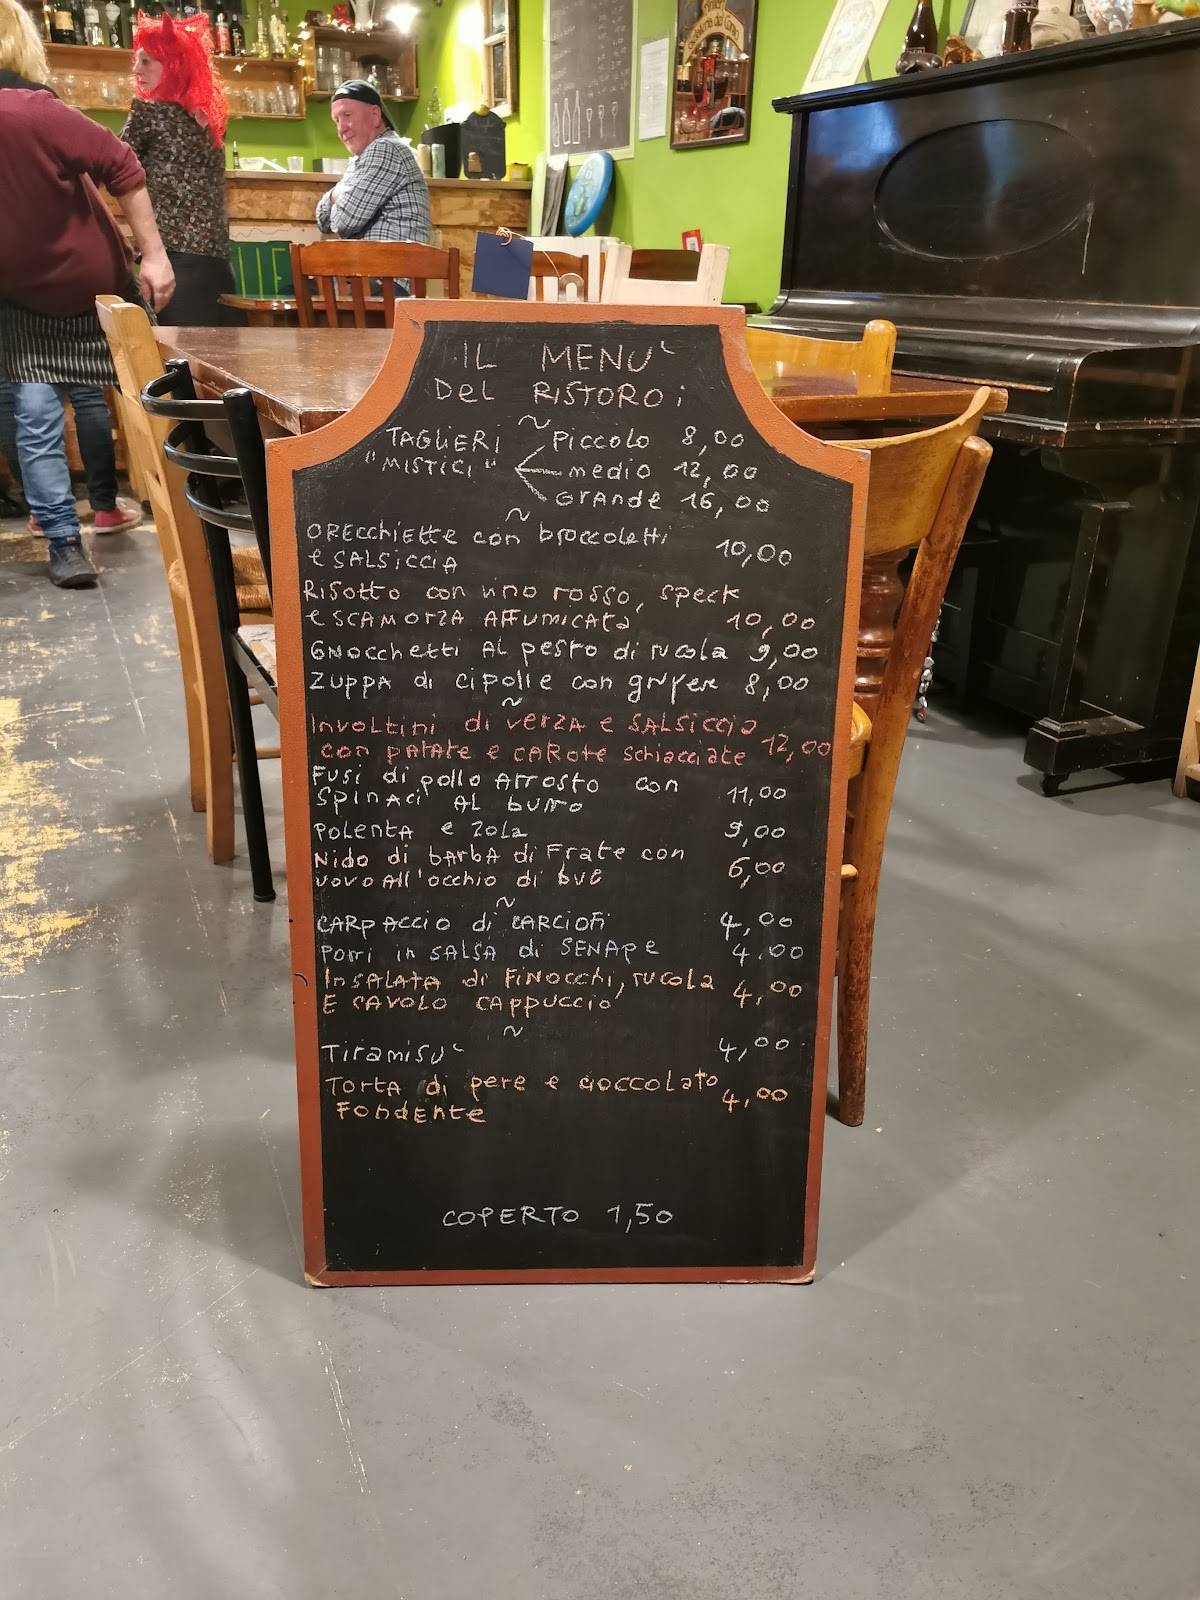 IL MENU`
DEL RISTOROi
~
TAGLIERI PICCOLO 8,00
"MISTICI" medio 12,00
GRANDE 16,00
~
ORECCHIETTE con broccoletti
e SALSICCIA 10,00
RISOTTO con vino rosso, speck
e SCAMORZA AFFUMICATA 10,00
GNOCCHETTI AL PESTO di rucola 9,00
ZUPPA di cipolle con gruyere 8,00
~
INVOLTINI di VERZA e SALSICCIA
CON PATATE e CAROTE schiacciate 12,00
FUSI di pollo Arrosto con
SPINACI AL burro 11,00
POLENTA e ZOLA 9,00
NIDO di BARBA di FRATE con
uovo All'occhio di bue 6,00
~
CARPACCIO di CARCIOFI 4,00
PORRI in SALSA di SENAPE 4.00
INSALATA di FINOCCHI, rucola
E CAVOLO CAPPUCCIO 4,00
~
TIRAMISU` 4,00
TORTA di pere e cioccolato
FONDENTE 4,00
COPERTO 1,50